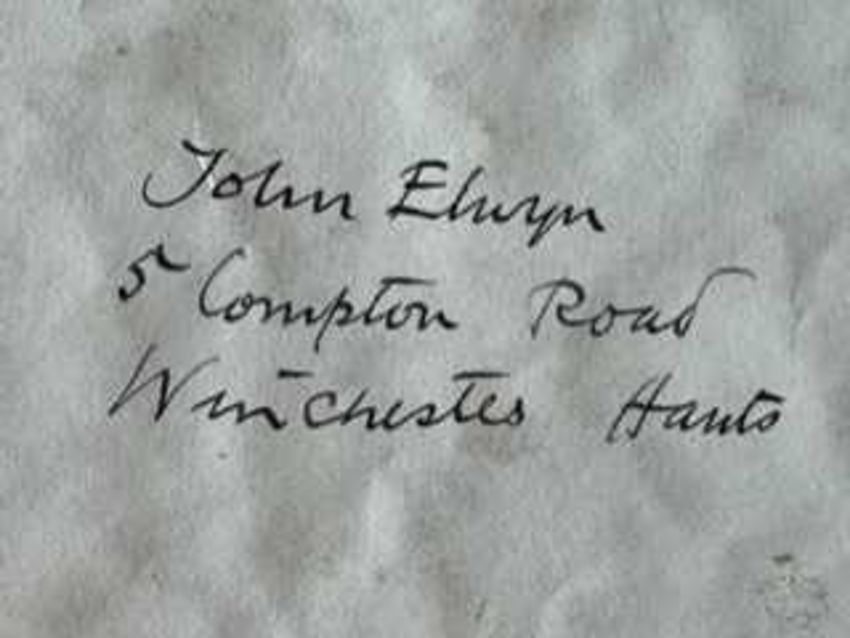 John Elwyn
5 Compton Road
Winchester Hants